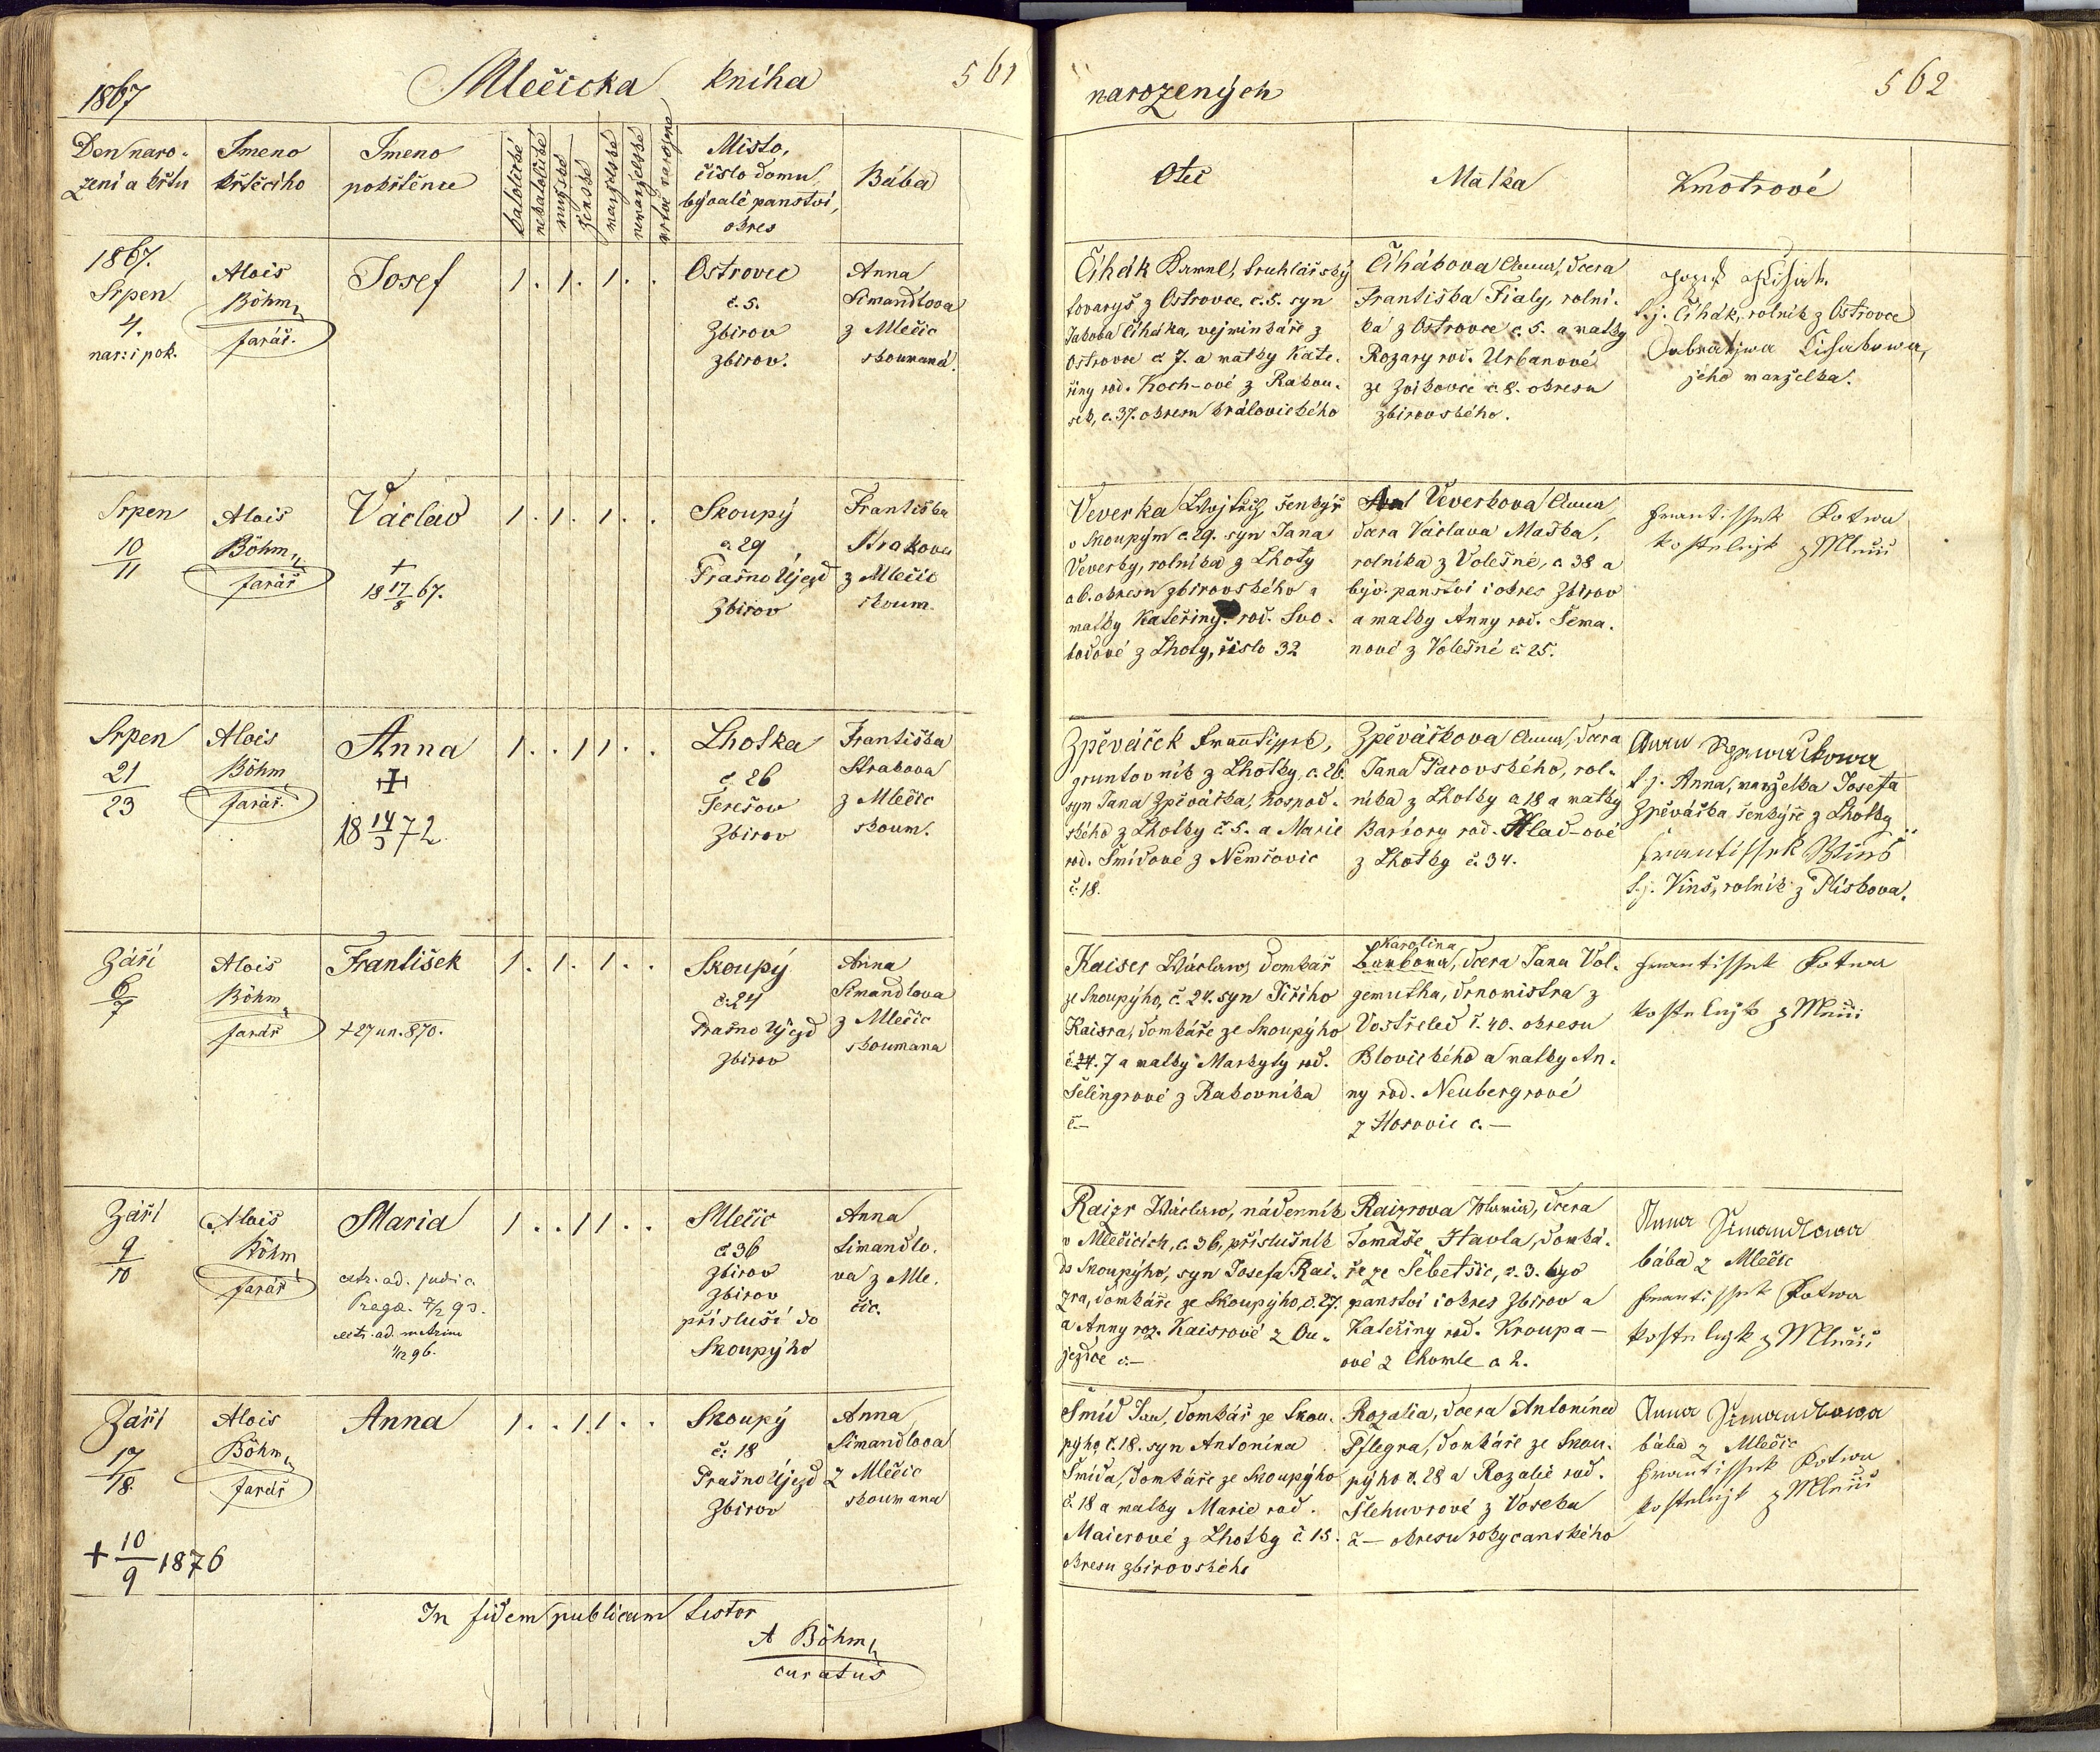 1867
Mlečicka kniha
561
Den naro-
zení a křtu
Jmeno
křtěcího
Jmeno
pokřtěnce
katolické
nekatolické
mužské
ženské
manželské
nemanželské
mrtvě narozené
Místo,
číslo domu
býválé panství,
okres
Bába
1867.
Srpen
4.
nar: i pok.
Alois
Böhm
farář.
Josef
1 . 1 . 1 . .
Ostrovec
č. 5.
Zbirov
Zbirov.
Anna
Simandlova
z Mlečic
skoumaná.
Srpen
10
11
Alois
Böhm
farář
Václav
+
18 17/8 67.
1 . 1 . 1 . .
Skoupý
č 29
Prašno Újezd
Zbirov
Františka
Strakova
z Mlečic
skoum.
Srpen
21
23
Alois
Böhm
farář.
Anna
+
18 14/3 72
1 . . 1 1 . .
Lhotka
č. 26
Terešov
Zbirov
Františka
Strakova
z Mlečic
skoum.
Září
6
7
Alois
Böhm
farář
František
+ 27 un. 870.
1 . 1 . 1 . .
Skoupý
č. 24
Prašno Újezd
Zbirov
Anna
Simandlova
z Mlečic
skoumana
Září
9
10
Alois
Böhm
farář
Maria
extr. ad. judic.
Praga. 7/2 93.
extr. ad. matrim
1/12 96.
1 . . 1 1 . .
Mlečic
č 36
Zbirov
Zbirov
přísluší do
Skoupýho
Anna
Simandlo-
va z Mle-
čic.
Září
17
18.
+ 10/9 1876
Alois
Böhm
farář
Anna
1 . . 1 1 . .
Skoupý
č: 18
Prašno Újezd
Zbirov
Anna
Simandlova
z Mlečic
skoumana
In fidem publicam testor
A Böhm
curatus
562
narozených
Otec
Matka
Kmotrové
Čihák Karel, truhlářský
tovaryš z Ostrovce č. 5. syn
Jakuba Čiháka, vejminkáře z
Ostrovce č 7. a matky Kate-
řiny rod. Koch-ové z Rakou-
sek, č. 37. okresu královického
Čihákova Anna, dcera
Františka Fialy, rolní-
ka z Ostrovce č. 5. a matky
Rozary rod. Urbanové
ze Zvíkovce č. 8. okresu
zbirovského.
Jozef Čihák
t.j. Čihák, rolník z Ostrovce
jeho manželka.
Veverka Vojtěch, šenkýř
v Skoupým č. 29. syn Jana
Veverky, rolníka z Lhoty
ob. okresu zbirovského a
matky Kateřiny rod. Svo-
bodové z Lhoty, číslo 32
Veverkova Anna
dcera Václava Maška,
rolníka z Volešné, č 38 a
býv. panství i okres Zbirov
a matky Anny rod. Šema-
nové z Volešné č. 25.
Frantissek Kotwa
kostelnjk z Mlečic
Zpěváček Frantissek,
gruntovník z Lhotky č. 26.
syn Jana Zpěváčka, hospod-
ského z Lhotky č. 5. a Marie
rod. Šmídové z Němčovic
č. 18.
Zpěváčkova Anna, dcera
Jana Parovského, rol-
níka z Lhotky č 18 a matky
Barbory rod. Hlad-ové
z Lhotky č. 34.
Anna Zpiwačkowa
t.j. Anna, manželka Josefa
Zpěváčka šenkýře z Lhotky
Frantissek Winš
t.j. Vinš, rolník z Plískova.
Kaiser Wáclaw, domkář
ze Skoupýho, č. 24. syn Jiřího
Kaisra, domkáře ze Skoupýho
č 24. 7 a matky Markyty rod.
Šelingrové z Rakovníka
č.—
Karolina
dcera Jana Vol-
gemutha, drnomistra z
Vostřeled č. 40. okresu
Blovického a matky An-
ny rod. Neubergrové
z Horovic č. —
Frantissek Kotwa
kostelnjk z Mlečic
Raizr Wáclaw, nádenník
v Mlečicích, č. 36, příslušník
do Skoupýho, syn Josefa Rai-
zra, domkáře ze Skoupýho, č. 27.
a Anny roz. Kaisrové z Ou-
jezdce č.—
Raizrova Maria, dcera
Tomáše Havla, domká-
ře ze Šebetšic, č. 3. býv
panství i okres Zbirov a
Kateřiny rod. Kroupa-
ové z Chomle č 2.
Anna Simandlowa
bába z Mlečic
Frantissek Kotwa
kostelnjk z Mlečic
Šmíd Jan, domkář ze Skou-
pýho, č. 18. syn Antonína
Šmída, domkáře ze Skoupýho
č. 18 a matky Marie rod.
Maierové z Lhotky č. 15.
okresu zbirovského
Rozalia, dcera Antonína
Pflegra, domkáře ze Skou-
pýho č. 28 a Rozalie rod.
Šlehuvrové z Voseka
č — okresu rokycanského
Anna Simandlowa
bába z Mlečic
Frantissek Kotwa
kostelnjk z Mlečic